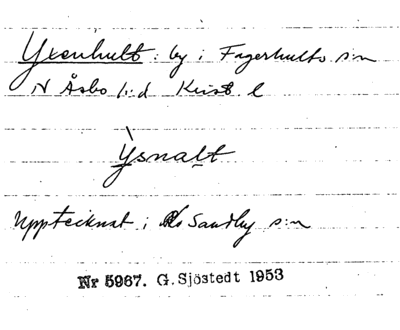 Yxenhult: by i Fagerhults s:n
N Åsbo h:d Krist. l
Ỳsnalt
Upptecknat i Sandby s:n
Nr 5967. G. Sjöstedt 1953